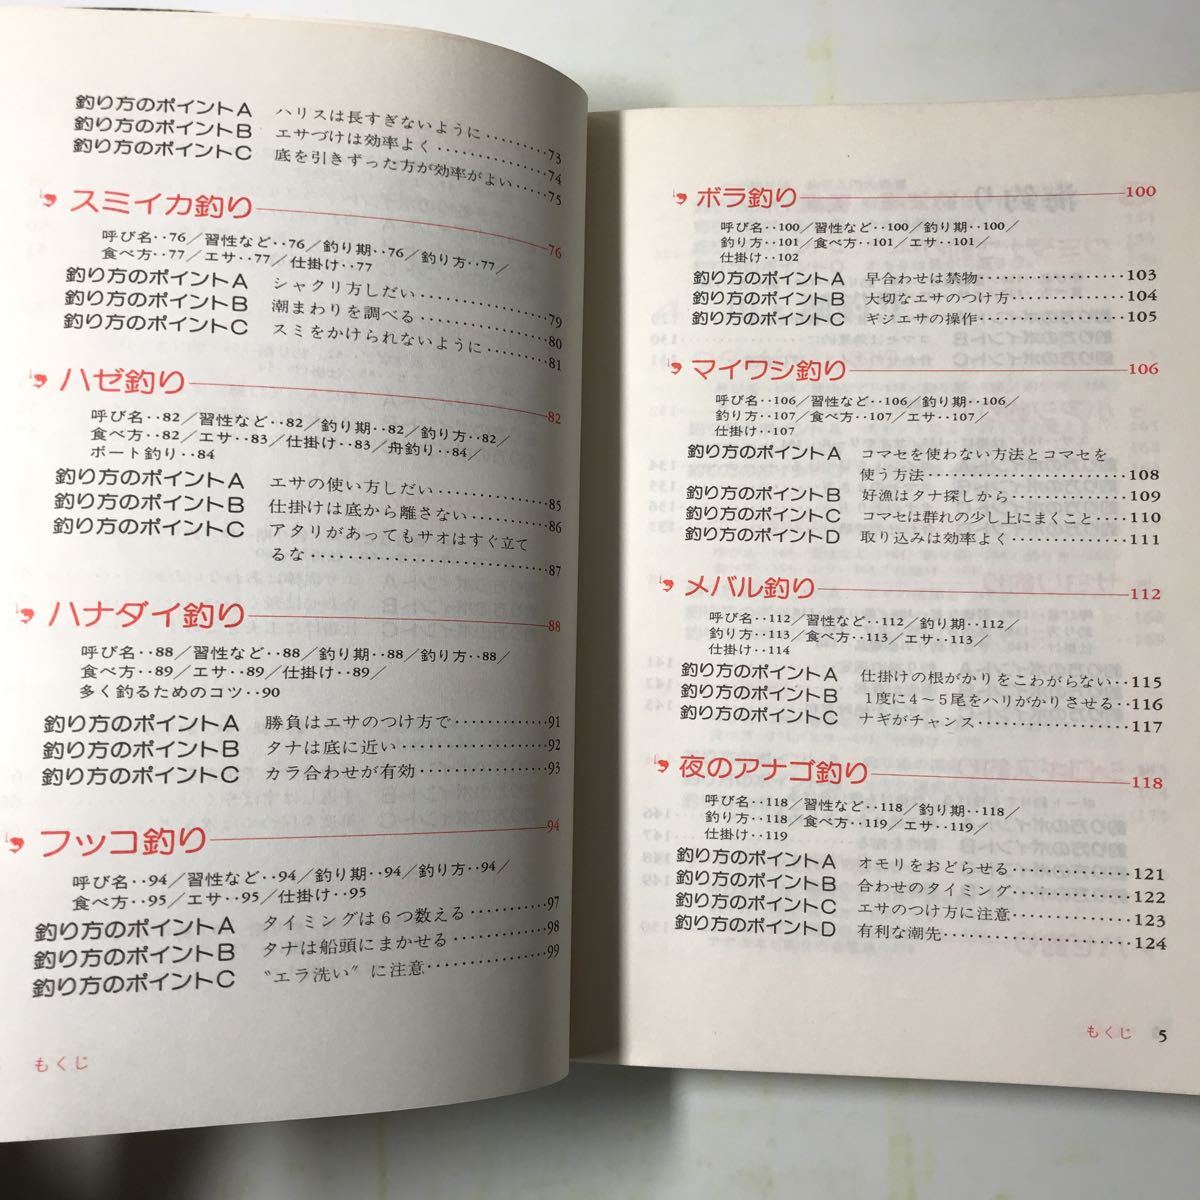 釣り方のポイントA ハリスは長すぎないように………73
釣り方のポイントB エサづけは効率よく…………74
釣り方のポイントC 底を引きずった方が効率がよい……75
スミイカ釣り 76
呼び名‥76／習性など‥76／釣り期‥76／釣り方‥77／
食べ方‥77／エサ‥77／仕掛け‥77
釣り方のポイントA シャクリ方しだい…………79
釣り方のポイントB 潮まわりを調べる…………80
釣り方のポイントC スミをかけられないように………81
ハゼ釣り 82
呼び名‥82／習性など‥82／釣り期‥82／釣り方‥82／
食べ方‥82／エサ‥83／仕掛け‥83／舟釣り‥84／
ボート釣り‥84
釣り方のポイントA エサの使い方しだい…………85
釣り方のポイントB 仕掛けは底から離さない………86
釣り方のポイントC アタリがあってもサオはすぐ立て
るな…………87
ハナダイ釣り 88
呼び名‥88／習性など‥88／釣り期‥88／釣り方‥88／
食べ方‥89／エサ‥89／仕掛け‥89／
多く釣るためのコツ‥90
釣り方のポイントA 勝負はエサのつけ方で…………91
釣り方のポイントB タナは底に近い…………92
釣り方のポイントC カラ合わせが有効…………93
フッコ釣り 94
呼び名‥94／習性など‥94／釣り期‥94／釣り方‥94／
食べ方‥95／エサ‥95／仕掛け‥95
釣り方のポイントA タイミングは6つ数える………97
釣り方のポイントB タナは船頭にまかせる…………98
釣り方のポイントC 〝エラ洗い〟に注意…………99
もくじ
ボラ釣り 100
呼び名‥100／習性など‥100／釣り期‥100／
釣り方‥101／食べ方‥101／エサ‥101／
仕掛け‥102
釣り方のポイントA 早合わせは禁物…………103
釣り方のポイントB 大切なエサのつけ方…………104
釣り方のポイントC ギジエサの操作…………105
マイワシ釣り 106
呼び名‥106／習性など‥106／釣り期‥106／
釣り方‥107／食べ方‥107／エサ‥107／
仕掛け‥107
釣り方のポイントA コマセを使わない方法とコマセを
使う方法…………108
釣り方のポイントB 好漁はタナ探しから…………109
釣り方のポイントC コマセは群れの少し上にまくこと…110
釣り方のポイントD 取り込みは効率よく…………111
メバル釣り 112
呼び名‥112／習性など‥112／釣り期‥112／
釣り方‥113／食べ方‥113／エサ‥113／
仕掛け‥114
釣り方のポイントA 仕掛けの根がかりをこわがらない…115
釣り方のポイントB 1度に4～5尾をハリがかりさせる…116
釣り方のポイントC ナギがチャンス…………117
夜のアナゴ釣り 118
呼び名‥118／習性など‥118／釣り期‥118／
釣り方‥118／食べ方‥119／エサ‥119／
仕掛け‥119
釣り方のポイントA オモリをおどらせる…………121
釣り方のポイントB 合わせのタイミング…………122
釣り方のポイントC エサのつけ方に注意…………123
釣り方のポイントD 有利な潮先…………124
もくじ 5